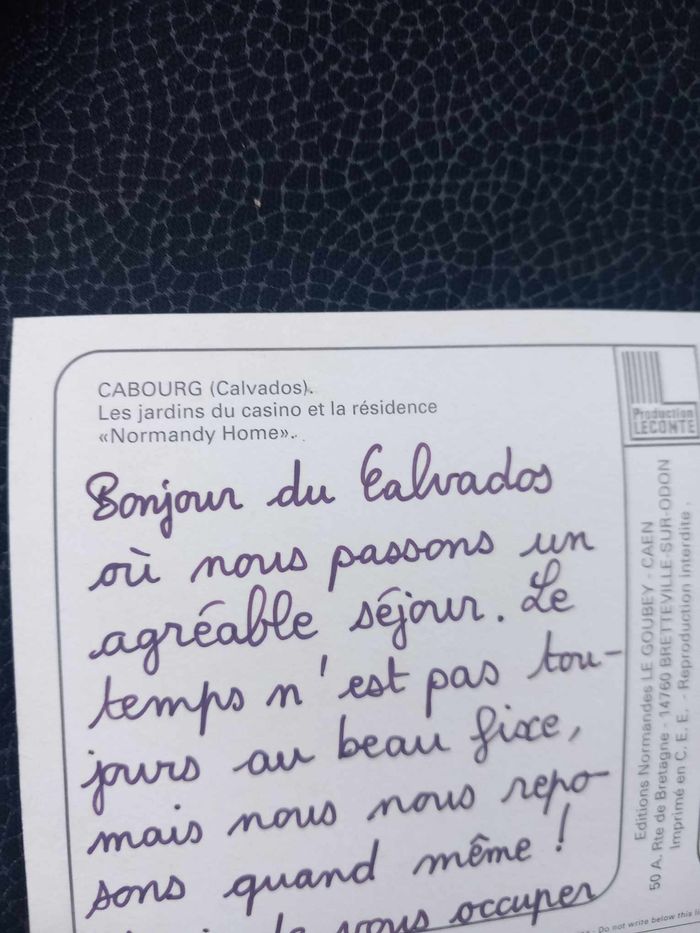 CABOURG (Calvados).
Les jardins du casino et la résidence
«Normandy Home».
Bonjour du Calvados
où nous passons un
agréable séjour. Le
temps n'est pas tou-
jours au beau fixe,
mais nous nous repo-
sons quand même !
de vous occuper
Production
LECONTE
Editions Normandes LE GOUBEY - CAEN
50 A. Rte de Bretagne - 14760 BRETTEVILLE-SUR-ODON
Imprimé en C. E. E. - Reproduction interdite.
Do not write below this li